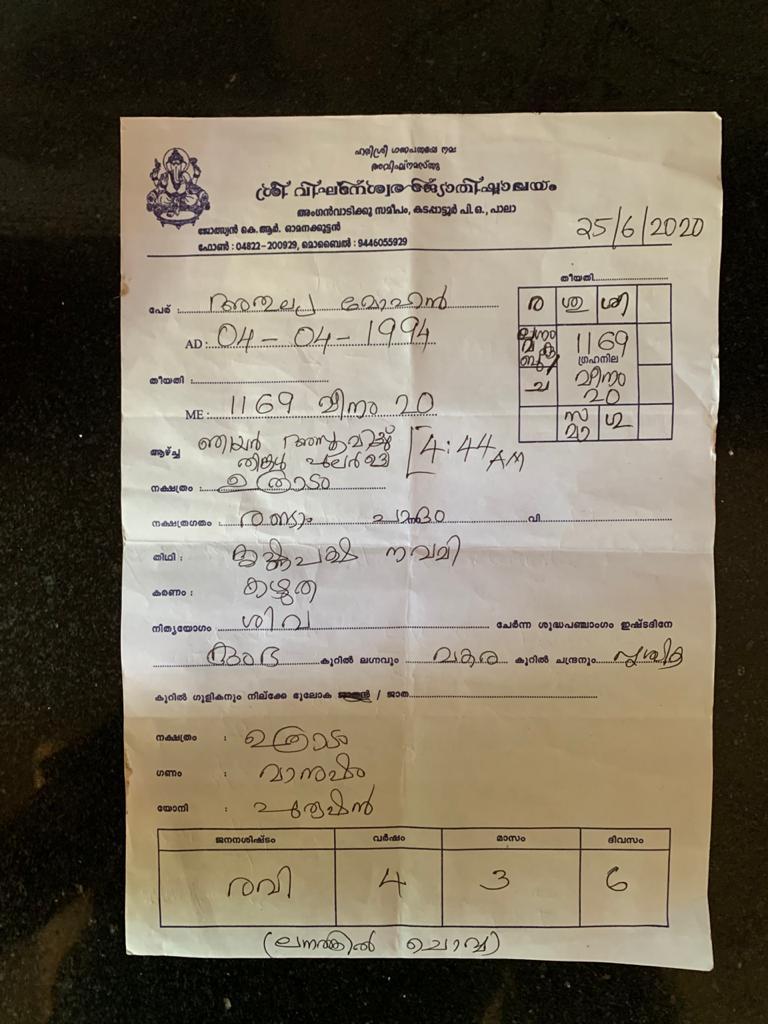 ഹരിശ്രീ ഗണപതയേ നമഃ
അവിഘ്നമസ്തു
ശ്രീ വിഘ്നേശ്വര ജ്യോതിഷാലയം
അംഗൻവാടിക്കു സമീപം, കടപ്പാട്ടൂർ പി.ഒ., പാലാ
ജോത്സ്യൻ കെ.ആർ. ഓമനക്കുട്ടൻ
ഫോൺ : 04822-200929, മൊബൈൽ : 9446055929
25/6/2020
തീയതി
പേര് : മോഹൻ
ര ശു ശി
AD : 04 - 04 - 1994
1169
ഗ്രഹനില
തീയതി :
ച മീനം
20
ME : 1169 മീനം 20
സ ഗു
മാ
ആഴ്ച്ച ഞായർ അസ്തമിച്ച്
തിങ്കൾ പുലർച്ച 4:44 AM
നക്ഷത്രം : ഉത്രാടം
നക്ഷത്രഗതം : രണ്ടാം പാദം വി
തിഥി : കൃഷ്ണപക്ഷ നവമി
കരണം : കഴുത
നിത്യയോഗം ശിവ ചേർന്ന ശുദ്ധപഞ്ചാംഗം ഇഷ്ടദിനേ
കുംഭ കൂറിൽ ലഗ്നവും മകര കൂറിൽ ചന്ദ്രനും വൃശ്ചിക
കൂറിൽ ഗുളികനും നില്ക്കേ ഭൂലോക ജാതൻ / ജാത
നക്ഷത്രം : ഉത്രാടം
ഗണം : മാനുഷം
യോനി : പുരുഷൻ
ജനനശിഷ്ടം വർഷം മാസം ദിവസം
രവി 4 3 6
(ലഗ്നത്തിൽ ചൊവ്വ)